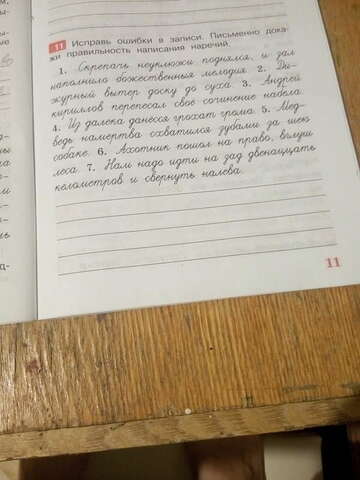 11 Исправь ошибки в записи. Письменно дока-
жи правильность написания наречий.
1. Скрепачь неуклюжи поднялся, и зал
наполнило божественныя мелодия. 2. Де-
журный вытер доску до суха. 3. Андрей
кириллов перепесал своё сочинение набела.
4. Из далека данёсся грохат грома. 5. Мед-
ведь намертва схватился зубами за шею
собаке. 6. Ахотник пошол на право, вглуш
леса. 7. Нам надо идти на зад двенаццать
келометров и свернуть налева.
11